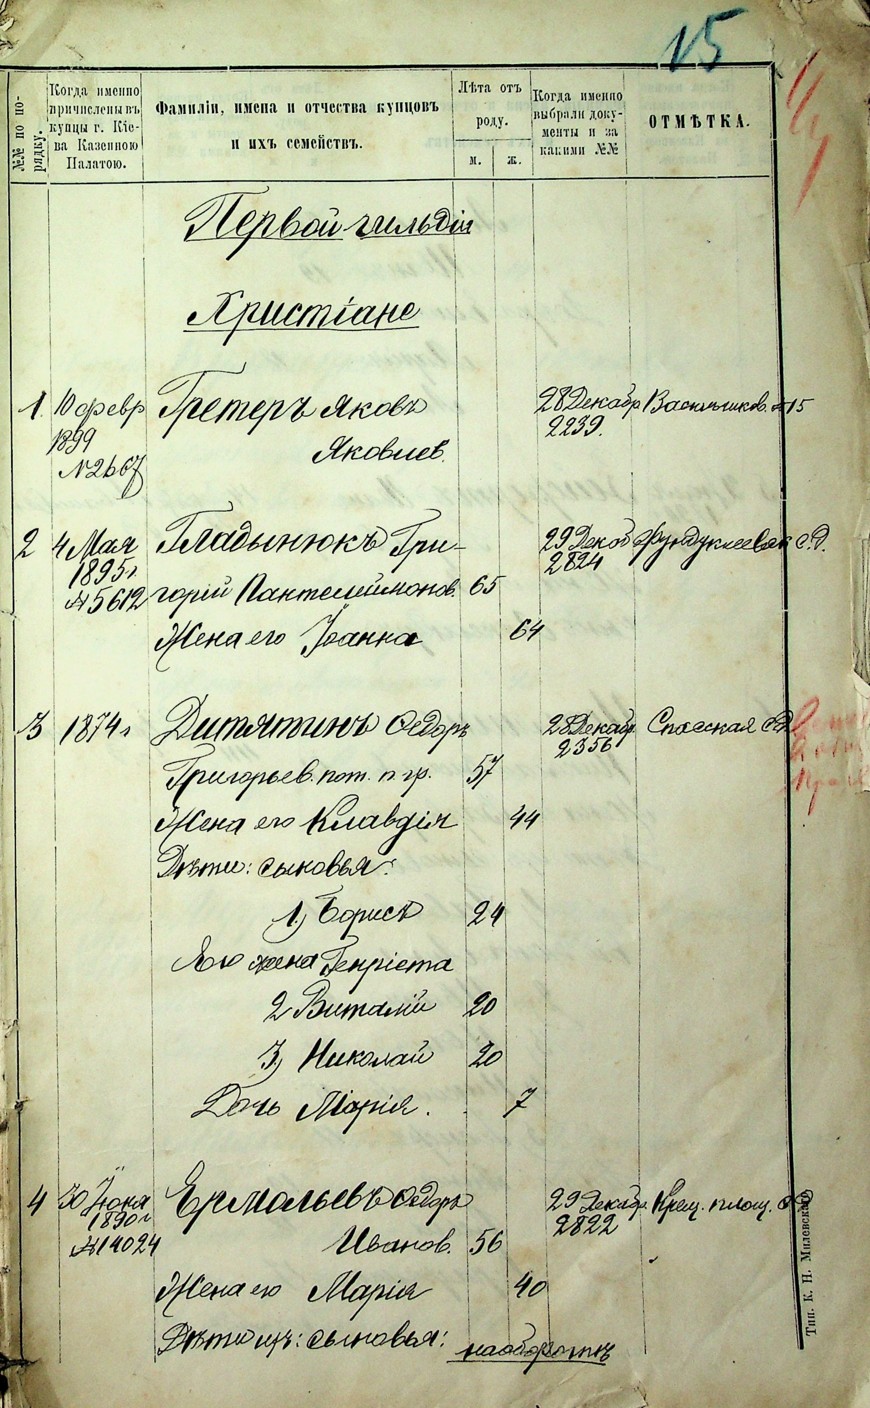 15
№№ по по-
рядку.
Когда именно
причислены въ
купцы г. Кіе-
ва Казенною
Палатою.
Фамиліи, имена и отчества купцовъ
и ихъ семействъ.
Лѣта отъ
роду.
м.
ж.
Когда именно
выбрали доку-
менты и за
какими №№
ОТМѢТКА.
Первой гильдіи
Христіане
1 10 февр Гретеръ Яковъ 28 Декабр Васильков. №15
1899 2239.
Яковлев.
№2667
2 4 Мая Гладынюкъ Гри- 29 Декаб Фундуклеевск с.д.
1895г 2824
№5612 горій Пантелеймонов. 65
Жена его Іоанна 64
3 1874г Дитятинъ Ѳедоръ 28 Декабр. Спасская с.д.
2356
Григорьев. пот. п. гр. 57
Жена его Клавдія 44
Дѣти: сыновья:
1) Борисъ 24
Его жена Генріета
2 Виталій 20
3) Николай 20
Дочь Марія. 7
4 30 Іюня Ермольевъ Ѳедоръ 29 Декабр. Крещ. площ. с.д.
1890г 2822
№14024 Иванов. 56
Жена его Марія 40
Дѣти ихъ: сыновья:
наоборотѣ
Тип. К. Н. Милевскаго